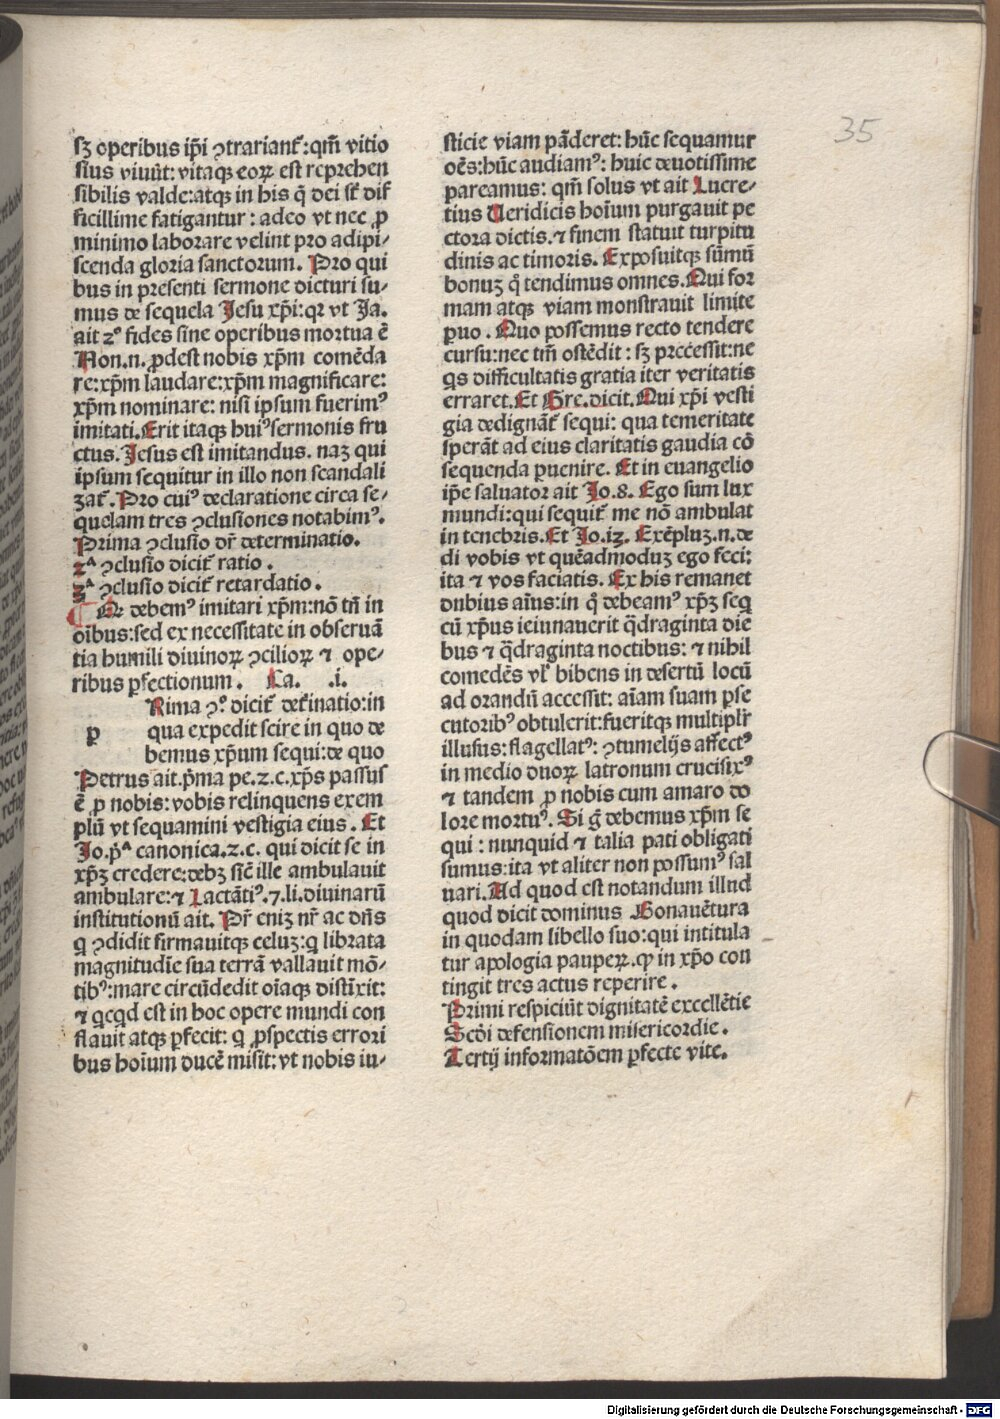 35
sꝫ operibus ip̄i ꝯtrariant᷑: qm̄ vitio
sius viuūt: vitaqꝫ eoꝝ est reprehen
sibilis valde: atqꝫ in his q̄ dei sūt dif
ficillime fatigantur: adeo vt nec ꝓ
minimo laborare velint pro adipi/
scenda gloria sanctorum. Pro qui
bus in presenti sermone dicturi su/
mus de sequela Jesu xp̄i: qꝛ vt Ja.
ait 2º fides sine operibus mortua ē
Non.n. ꝓdest nobis xp̄m comēda
re: xp̄m laudare: xp̄m magnificare:
xp̄m nominare: nisi ipsum fuerimꝰ
imitati. Erit itaqꝫ huiꝰ sermonis fru
ctus. Jesus est imitandus. naꝫ qui
ipsum sequitur in illo non scandali
zat᷑. Pro cuiꝰ declaratione circa se/
quelam tres ꝯclusiones notabimꝰ.
Prima ꝯclusio dr̄ determinatio.
2ᵃ ꝯclusio dicit᷑ ratio.
3ᵃ ꝯclusio dicit᷑ retardatio.
¶ Qꝛ debemꝰ imitari xp̄m: nō tn̄ in
oībus: sed ex necessitate in obseruā
tia humili diuinoꝝ ꝯcilioꝝ ⁊ ope/
ribus ꝑfectionum. Ca. .i.
Rima ꝯº dicit᷑ det᷑inatio: in
p qua expedit scire in quo de
bemus xp̄um sequi: de quo
Petrus ait. p̄ma pe.2.c. xp̄s passus
ē ꝓ nobis: vobis relinquens exem
plū vt sequamini vestigia eius. Et
Jo.p̄ᵃ canonica.2.c. qui dicit se in
xp̄ꝫ credere: debꝫ sic̄ ille ambulauit
ambulare: ⁊ Lactātiꝰ.7.li. diuinarū
institutionū ait. Pr̄ eniꝫ nr̄ ac dn̄s
q ꝯdidit firmauitqꝫ celuꝫ: q librata
magnitudīe sua terrā vallauit mō/
tibꝰ: mare circūdedit oīaqꝫ distīxit:
⁊ qcqd est in hoc opere mundi con
flauit atqꝫ ꝑfecit: q ꝓspectis errori
bus hoīum ducē misit: vt nobis iu/
sticie viam pāderet: hūc sequamur
oēs: hūc audiamꝰ: huic deuotissime
pareamus: qm̄ solus vt ait Lucre/
tius Ueridicis hoīum purgauit pe
ctora dictis. ⁊ finem statuit turpitu
dinis ac timoris. Exposuitqꝫ sūmū
bonuꝫ q̄ tendimus omnes. Qui for
mam atqꝫ viam monstrauit limite
ꝑuo. Quo possemus recto tendere
cursu: nec tm̄ ostēdit: sꝫ precessit: ne
qs difficultatis gratia iter veritatis
erraret. Et Gre. dicit. Qui xp̄i vesti
gia dedignāt᷑ sequi: qua temeritate
sperāt ad eius claritatis gaudia cō
sequenda ꝑuenire. Et in euangelio
ip̄e saluator ait Jo.8. Ego sum lux
mundi: qui sequit᷑ me nō ambulat
in tenebris. Et Jo.13. Exēpluꝫ.n. de
di vobis vt quēadmoduꝫ ego feci:
ita ⁊ vos faciatis. Ex his remanet
dubius aīus: in q̄ debeamꝰ xp̄ꝫ seq
cū xp̄us ieiunauerit q̄draginta die
bus ⁊ q̄draginta noctibus: ⁊ nihil
comedēs vl᷑ bibens in desertū locū
ad orandū accessit: aīam suam ꝑse
cutoribꝰ obtulerit: fueritqꝫ multipl᷑r
illusus: flagellatꝰ: ꝯtumelijs affectꝰ
in medio duoꝝ latronum crucifixꝰ
⁊ tandem ꝓ nobis cum amaro do
lore mortuꝰ. Si g̊ debemus xp̄m se
qui: nunquid ⁊ talia pati obligati
sumus: ita vt aliter non possumꝰ sal
uari. Ad quod est notandum illud
quod dicit dominus Bonauētura
in quodam libello suo: qui intitula
tur apologia pauperꝝ. ꝙ in xp̄o con
tingit tres actus reperire.
Primi respiciūt dignitatē excellētie
Scd̄i defensionem misericordie.
Tertij informatōem ꝑfecte vite.
Digitalisierung gefördert durch die Deutsche Forschungsgemeinschaft - DFG